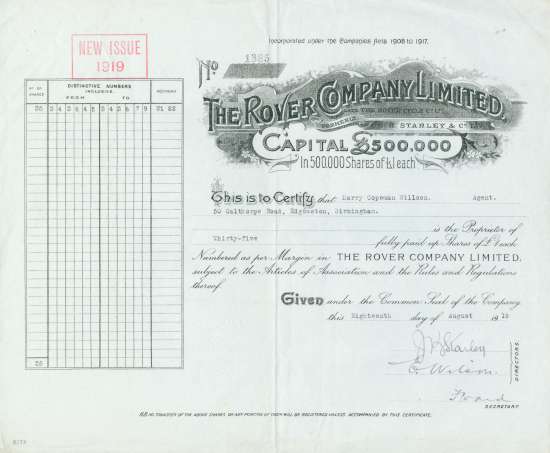 Incorporated under the Companies Acts 1908 to 1917.
NEW ISSUE
1919
No 1385
THE ROVER COMPANY LIMITED.
FORMERLY
STARLEY & Co
CAPITAL £500,000
In 500,000 Shares of £1 each
NO. OF SHARES
DISTINCTIVE NUMBERS INCLUSIVE.
FROM TO
REFERENCE
This is to Certify that Harry Copeman Willson. Agent.
50 Calthorpe Road, Edgbaston, Birmingham.
is the Proprietor of
Thirty-five fully paid up Shares of £1 each
Numbered as per Margin in THE ROVER COMPANY LIMITED,
subject to the Articles of Association and the Rules and Regulations
thereof.
Given under the Common Seal of the Company
this Eighteenth day of August 19
J K Starley
E. Wilson.
DIRECTORS.
SECRETARY.
35
N.B. NO TRANSFER OF THE ABOVE SHARES OR ANY PORTION OF THEM WILL BE REGISTERED UNLESS ACCOMPANIED BY THIS CERTIFICATE.